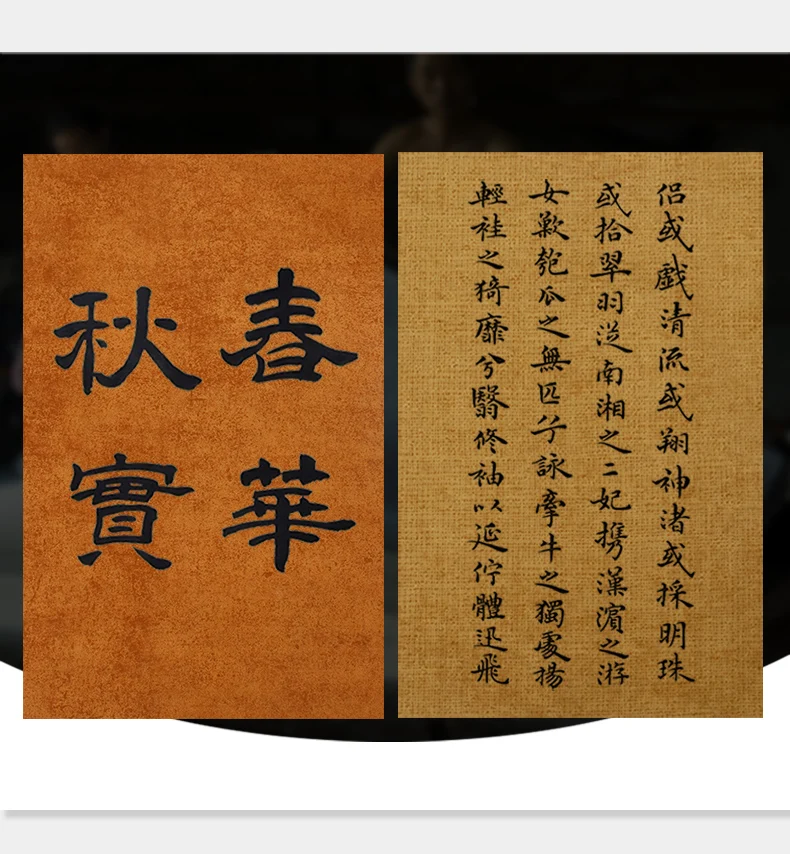 春華
秋實
侣或戲清流或翔神渚或採明珠
或拾翠羽從南湘之二妃携漢濱之游
女歎匏瓜之無匹兮詠牽牛之獨處揚
輕袿之猗靡兮翳修袖以延佇體迅飛